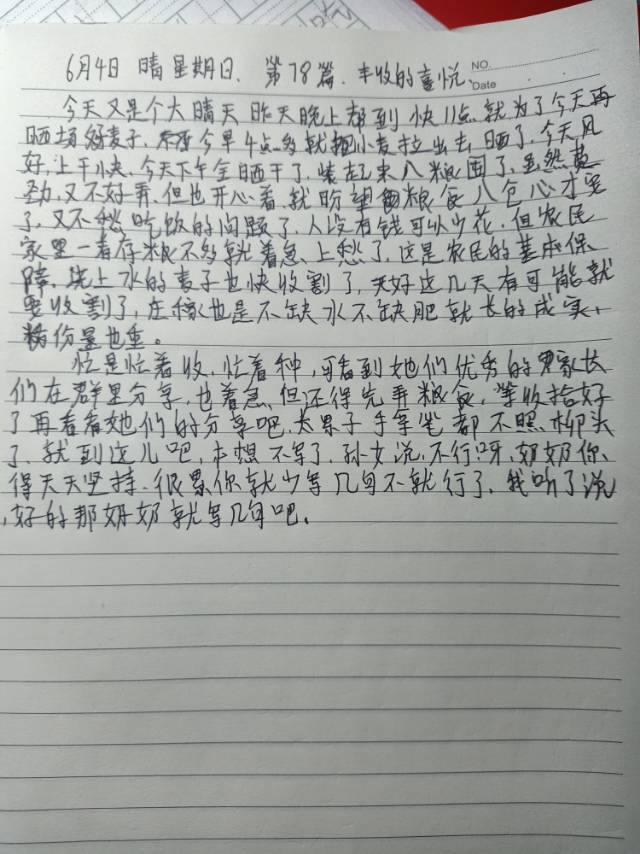 6月4日 晴 星期日、第78篇、丰收的喜悦、
NO.
Date
今天又是个大晴天 昨天晚上都到快11点、就为了今天再
晒场好麦子、今早4点多就把小麦拉出去,晒了、今天风
好,上干小快、今天下午全晒干了、装起来入粮囤了、虽然费
劲,又不好弄、但也开心着、就盼望粮食入仓心才安
了、又不愁吃饭的问题了、人没有钱可以少花、但农民
家里一看存粮不多就着急、上愁了、这是农民的基本保
障、浇上水的麦子也快收割了,天好这几天有可能就
要收割了,庄稼也是不缺水不缺肥就长的成实、
份量也重。
忙是忙着收、忙着种,可看到她们优秀的家长
们在群里分享、也着急、但还得先弄粮食、等收拾好
了再看看她们的分享吧、太累了手拿笔都不照
了、就到这儿吧、本想不写了、孙女说、不行呀,奶奶你、
得天天坚持、很累你就少写几句不就行了、我听了说
,好的那奶奶就写几句吧、